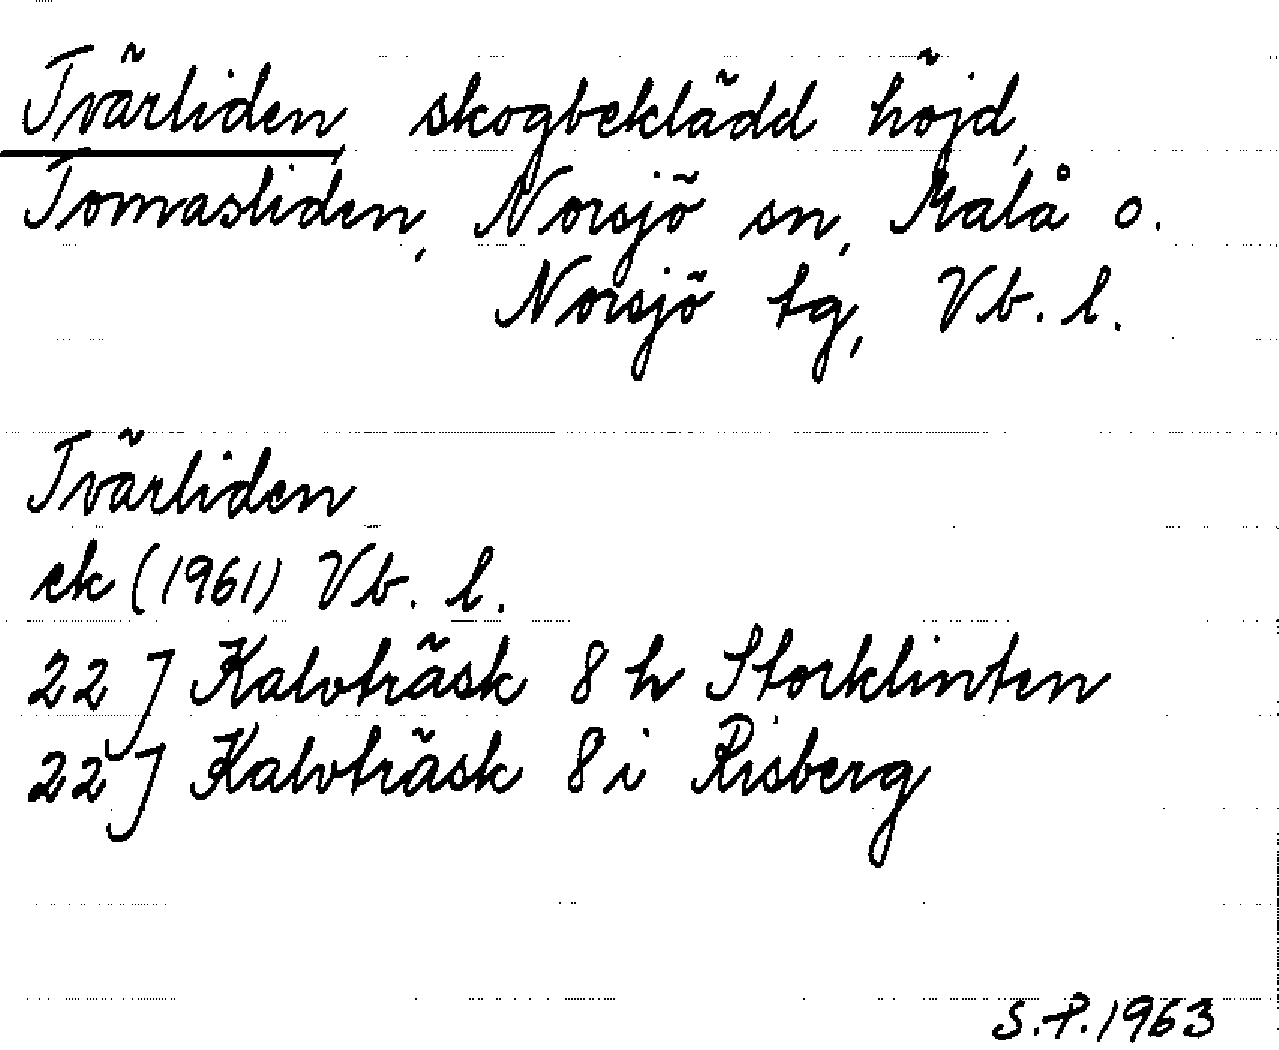 Tvärliden skogbeklädd höjd,
Tomasliden, Norsjö sn, Malå o.
Norsjö tg, Vb. l.
Tvärliden
ek (1961) Vb. l.
22 J Kalvträsk 8 h Storklinten
22 J Kalvträsk 8 i Risberg
S.P. 1963